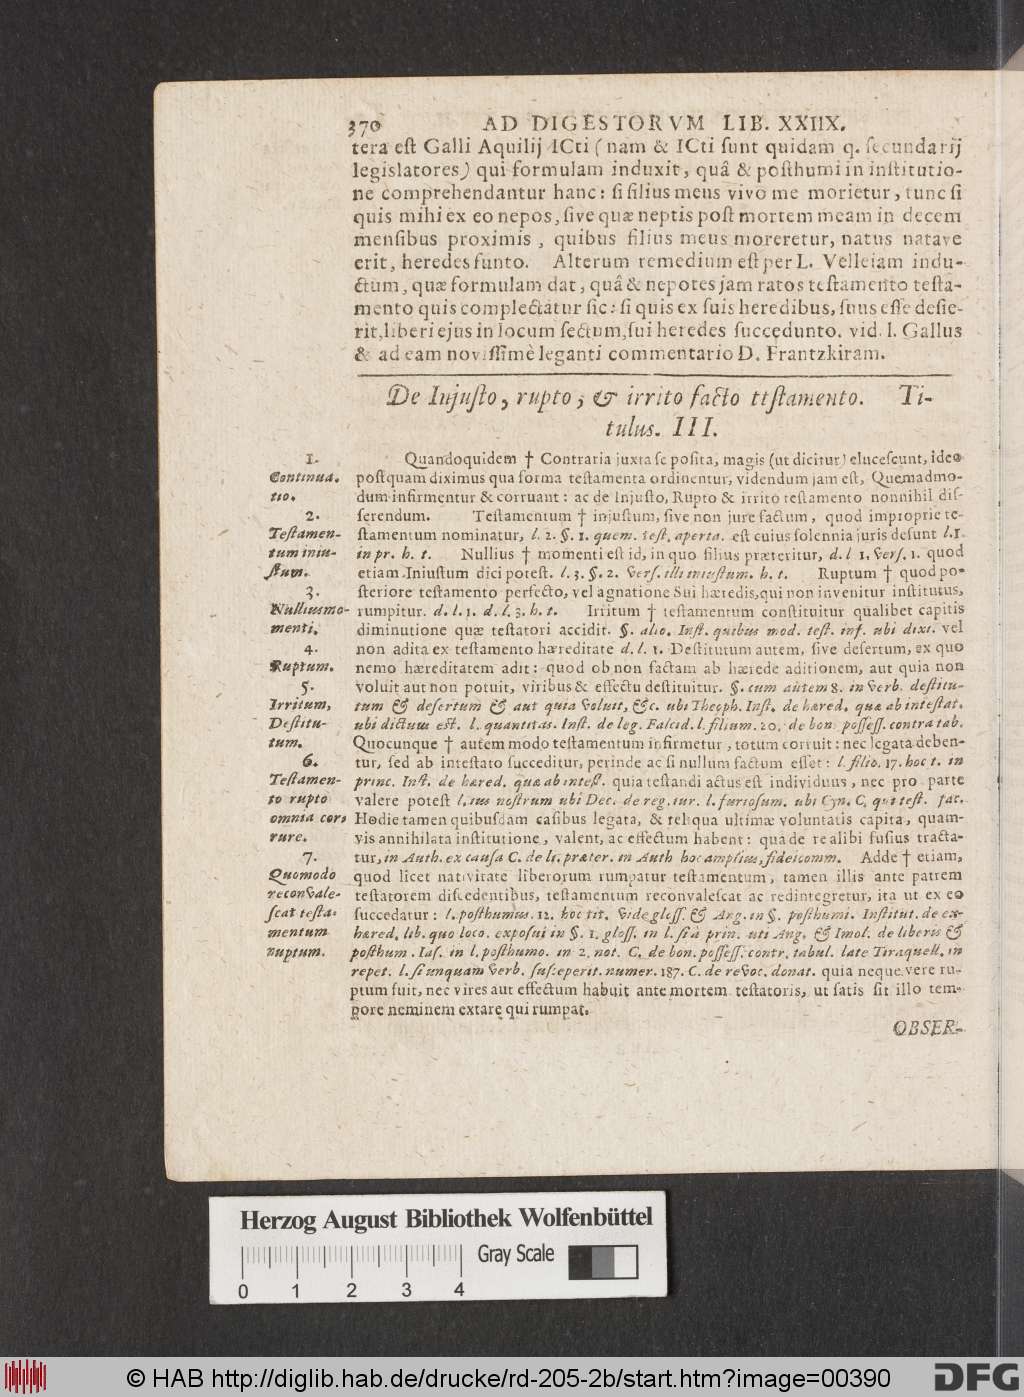 370 AD DIGESTORVM LIB. XXIIX.
tera est Galli Aquilij ICti (nam & ICti sunt quidam q. secundarij
legislatores) qui formulam induxit, quâ & posthumi in institutio-
ne comprehendantur hanc: si filius meus vivo me morietur, tunc si
quis mihi ex eo nepos, sive quæ neptis post mortem meam in decem
mensibus proximis, quibus filius meus moreretur, natus natave
erit, heredes sunto. Alterum remedium est per L. Velleiam indu-
ctum, quæ formulam dat, quâ & nepotes jam ratos testamento testa-
mento quis complectatur sic: si quis ex suis heredibus, suus esse desie-
rit, liberi ejus in locum sectum, sui heredes succedunto. vid. l. Gallus
& ad eam novissimè leganti commentario D. Frantzkiram.
De Injusto, rupto, & irrito facto ttstamento. Ti-
tulus. III.
1.
Continua-
tio.
2.
Testamen-
tum iniu-
stum.
3.
Nullius mo-
menti.
4.
Ruptum.
5.
Irritum,
Destitu-
tum.
6.
Testamen-
to rupto
omnia cor-
rure.
7.
Quomodo
reconvale-
scat testa-
mentum
ruptum.
Quandoquidem † Contraria juxta se posita, magis (ut dicitur) elucescunt, ideo
postquam diximus qua forma testamenta ordinentur, videndum jam est, Quemadmo-
dum infirmentur & corruant: ac de Injusto, Rupto & irrito testamento nonnihil dis-
serendum. Testamentum † injustum, sive non jure factum, quod improprie te-
stamentum nominatur, l. 2. §. 1. quem. test. aperta. est cuius solennia juris desunt l. 1.
in pr. h. t. Nullius † momenti est id, in quo filius præteritur, d. l 1. vers. 1. quod
etiam Iniustum dici potest. l. 3. §. 2. vers. illi iniustum. h. t. Ruptum † quod po-
steriore testamento perfecto, vel agnatione Sui hæredis, qui non invenitur institutus,
rumpitur. d. l. 1. d. l. 3. h. t. Irritum † testamentum constituitur qualibet capitis
diminutione quæ testatori accidit. §. alio. Inst. quibus mod. test. inf. ubi dixi. vel
non adita ex testamento hæreditate d. l. 1. Destitutum autem, sive desertum, ex quo
nemo hæreditatem adit: quod ob non factam ab hærede aditionem, aut quia non
voluit aut non potuit, viribus & effectu destituitur. §. cum autem 8. in verb. destitu-
tum & desertum & aut quia voluit, &c. ubi Theoph. Inst. de hæred. quæ ab intestat.
ubi dictum est. l. quantitas. Inst. de leg. Falcid. l. filium. 20. de bon. possess. contra tab.
Quocunque † autem modo testamentum infirmetur, totum corruit: nec legata deben-
tur, sed ab intestato succeditur, perinde ac si nullum factum esset: l. filio. 17. hoc t. in
princ. Inst. de hæred. quæ ab intest. quia testandi actus est individuus, nec pro parte
valere potest l. ius nostrum ubi Dec. de reg. iur. l. furiosum. ubi Cyn. C. qui test. fac.
Hodie tamen quibusdam casibus legata, & reliqua ultimæ voluntatis capita, quam-
vis annihilata institutione, valent, ac effectum habent: qua de re alibi fusius tracta-
tur, in Auth. ex causa C. de li. præter. in Auth hoc amplius, fideicomm. Adde † etiam,
quod licet nativitate liberorum rumpatur testamentum, tamen illis ante patrem
testatorem discedentibus, testamentum reconvalescat ac redintegretur, ita ut ex eo
succedatur: l. posthumus. 12. hoc tit. vide gloss. & Ang. in §. posthumi. Institut. de ex-
hæred. lib. quo loco. exposui in §. 1. gloss. in l. si à prin. uti Ang. & Imol. de liberis &
posthum. Ias. in l. posthumo. in 2. not. C. de bon. possess. contr. tabul. late Tiraquell. in
repet. l. si unquam verb. susceperit. numer. 187. C. de revoc. donat. quia neque vere ru-
ptum fuit, nec vires aut effectum habuit ante mortem testatoris, ut satis sit illo tem-
pore neminem extare qui rumpat.
OBSER-
Herzog August Bibliothek Wolfenbüttel
Gray Scale
0 1 2 3 4
© HAB http://diglib.hab.de/drucke/rd-205-2b/start.htm?image=00390
DFG